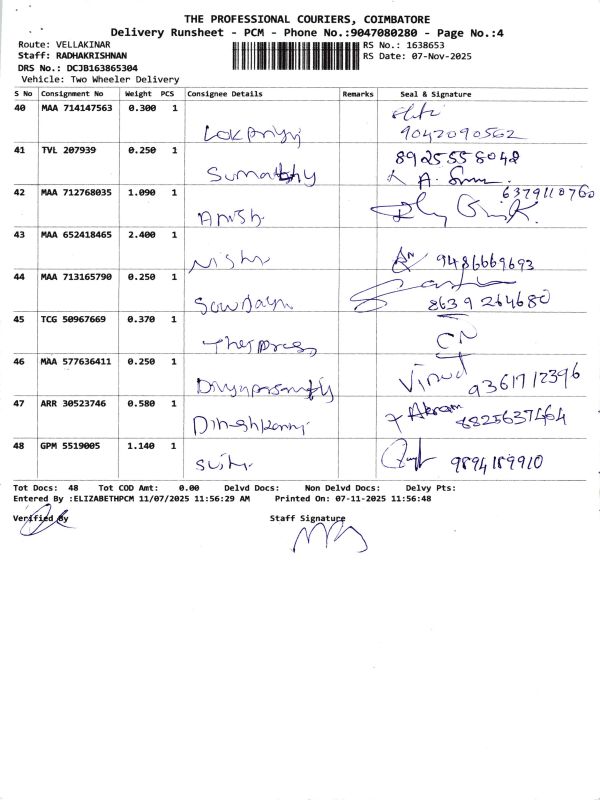 THE PROFESSIONAL COURIERS, COIMBATORE
Delivery Runsheet - PCM - Phone No.:9047080280 - Page No.:4
Route: VELLAKINAR
RS No.: 1638653
Staff: RADHAKRISHNAN
RS Date: 07-Nov-2025
DRS No.: DCJB163865304
Vehicle: Two Wheeler Delivery
S No Consignment No Weight PCS Consignee Details Remarks Seal & Signature
40 MAA 714147563 0.300 1
9042090562
41 TVL 207939 0.250 1 8925558048
Sumathy
42 MAA 712768035 1.090 1 6379110760
Anish
43 MAA 652418465 2.400 1
9486669693
44 MAA 713165790 0.250 1
8639264680
45 TCG 50967669 0.370 1
CN
46 MAA 577636411 0.250 1
Vinod 9361712396
47 ARR 30523746 0.580 1
Akram 8825637464
48 GPM 5519005 1.140 1
9894189910
Tot Docs: 48 Tot COD Amt: 0.00 Delvd Docs: Non Delvd Docs: Delvy Pts:
Entered By :ELIZABETHPCM 11/07/2025 11:56:29 AM Printed On: 07-11-2025 11:56:48
Verified By Staff Signature